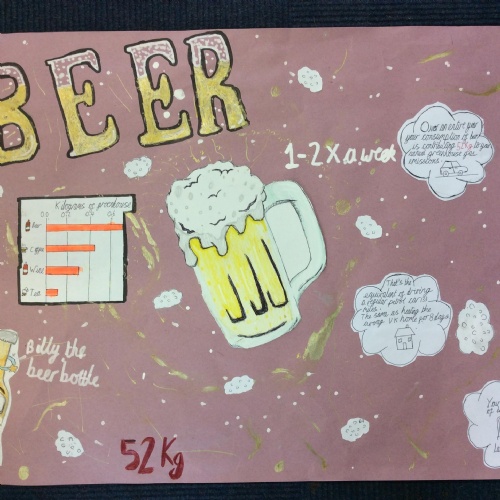 BEER
1-2 X a week
Over an entire year
your consumption of beer
is contributing 52Kg to your
annual greenhouse gas
emissions.
Kilograms of greenhouse
Beer
Coffee
Wine
Tea
That's the
equivalent of driving
a regular petrol car
miles.
The same as heating the
average UK home for 8 days
Billy the
beer bottle
You
of
52Kg